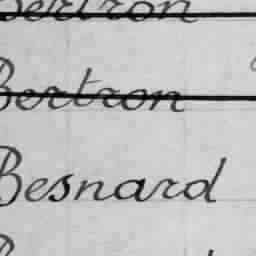 Bertron
Bertron
Besnard